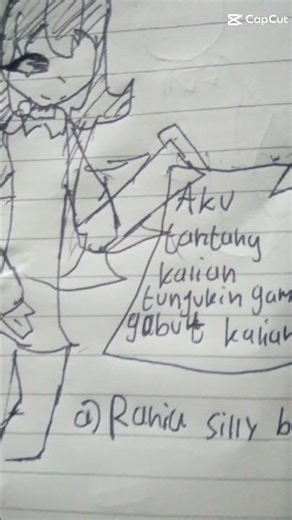 CapCut
Aku
tantang
kalian
tunjukin gam
gabut kalian
@) Rania silly b